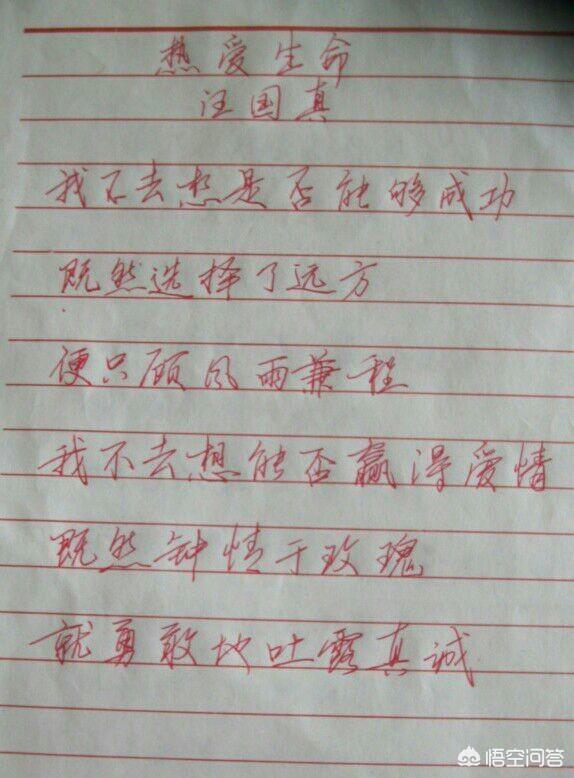 热爱生命
汪国真
我不去想是否能够成功
既然选择了远方
便只顾风雨兼程
我不去想能否赢得爱情
既然钟情于玫瑰
就勇敢地吐露真诚
悟空问答